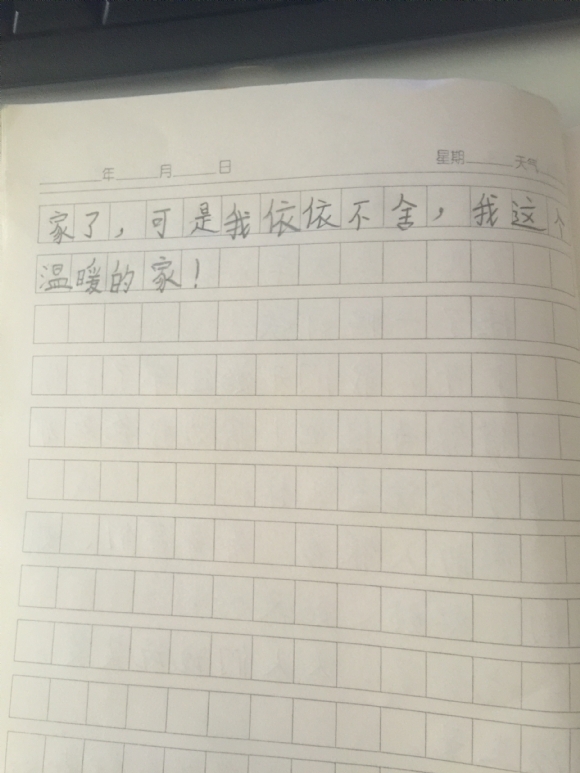 年 月 日 星期 天气
家了，可是我依依不舍，我这个
温暖的家！